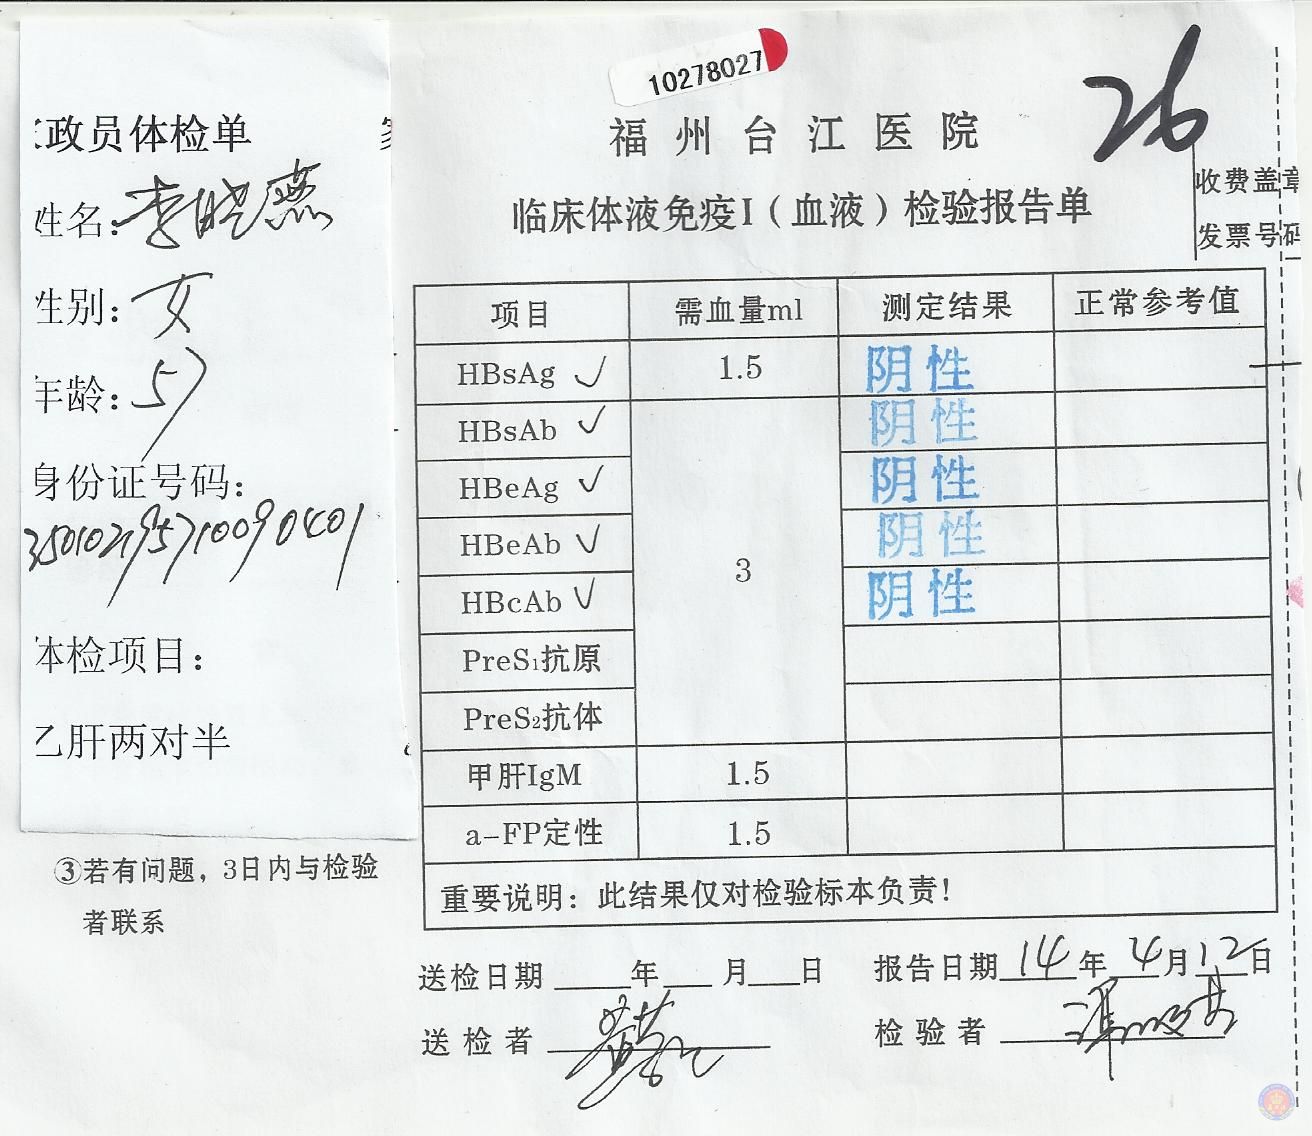 10278027
26
福州台江医院
临床体液免疫I（血液）检验报告单
收费盖章
发票号码
政员体检单
姓名：李晓燕
性别：女
年龄：57
身份证号码：
体检项目：
乙肝两对半
③若有问题，3日内与检验
者联系
项目 需血量ml 测定结果 正常参考值
HBsAg ✓ 1.5 阴性
HBsAb ✓ 阴性
HBeAg ✓ 阴性
HBeAb ✓ 3 阴性
HBcAb ✓ 阴性
PreS₁抗原
PreS₂抗体
甲肝IgM 1.5
a-FP定性 1.5
重要说明：此结果仅对检验标本负责！
送检日期 年 月 日 报告日期 14年4月12日
送检者 检验者